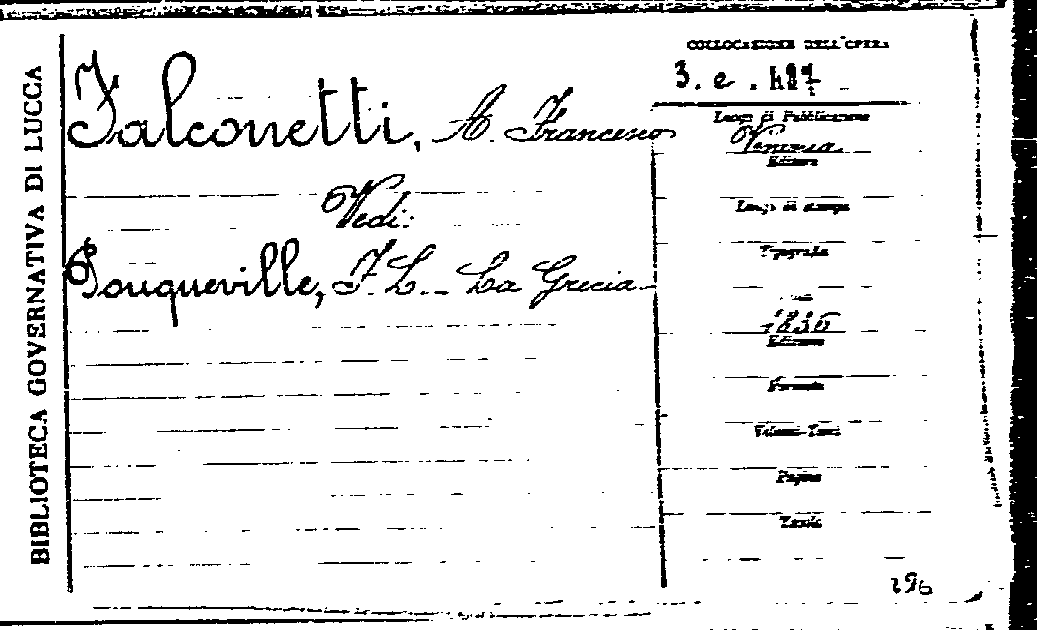 BIBLIOTECA GOVERNATIVA DI LUCCA
COLLOCAZIONE DELL'OPERA
3. e. 487
Falconetti, A. Francesco
Luogo di Pubblicazione
Venezia
Editore
Vedi:
Luogo di stampa
Tipografia
Pouqueville, F. L. - La Grecia
1836
Edizione
Formato
Volume-Tomo
Pagine
Tavole
296